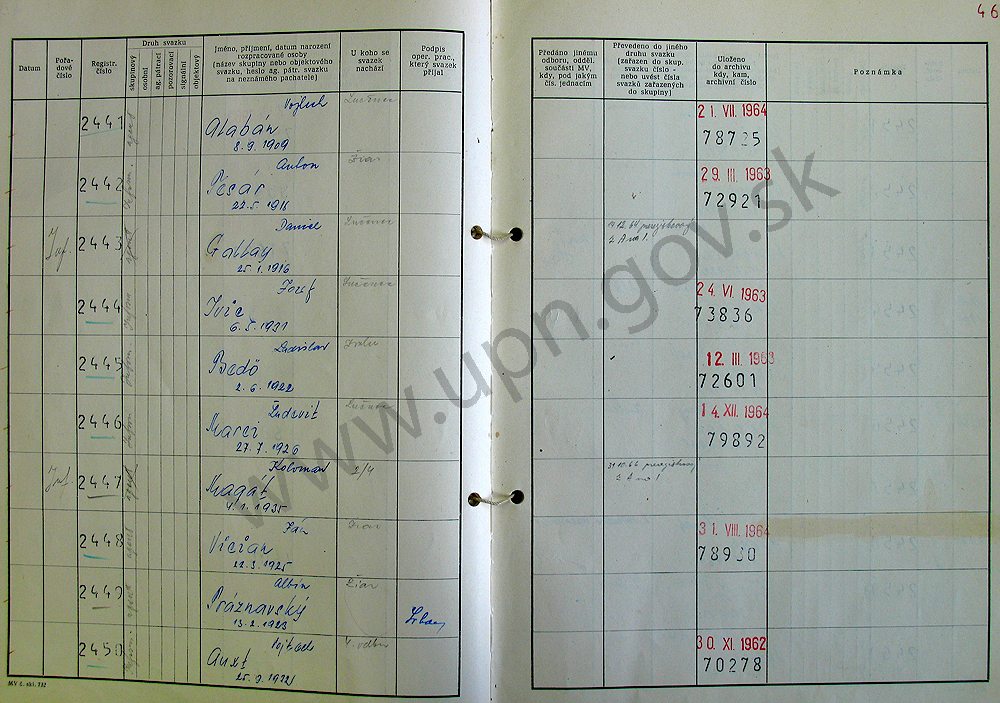 46
Datum
Pořadové číslo
Registr. číslo
Druh svazku
skupinový
osobní
ag. pátrací
pozorovací
signální
objektový
Jméno, příjmení, datum narození
rozpracované osoby
(název skupiny nebo objektového
svazku, heslo ag. pátr. svazku
na neznámého pachatele)
U koho se
svazek
nachází
Podpis
oper. prac.,
který svazek
přijal
Předáno jinému
odboru, odděl.
součásti MV,
kdy, pod jakým
čís. jednacím
Převedeno do jiného
druhu svazku
(zařazen do skup.
svazku číslo -
nebo uvést čísla
svazků zařazených
do skupiny)
Uloženo
do archivu
kdy, kam,
archivní číslo
Poznámka
Vojtech
2441 agent Alabán
8.9.1909
21. VII. 1964
78725
Anton
2442 Inform. Pésár
22.5.1916
29. III. 1963
72921
Daniel Lučenec
Inf. 2443 agent Gallay
25.1.1916
Jozef Lučenec
2444 Inform. Ivic
6.5.1921
24. VI. 1963
73836
Ladislav
2445 Inform. Bedö
2.6.1922
12. III. 1963
72601
Ľudovít Lučenec
2446 Inform. Marci
27.7.1926
14. XII. 1964
79892
Koloman 2/4
Inf. 2447 agent Magát
4.1.1935
Ján
2448 agent Vician
22.3.1925
31. VIII. 1964
78930
Albín Žiar
2449 agent Práznavský
13.2.1923
Vojtech 4. odbor
2450 Inform. Auxt
30. XI. 1962
70278
MV č. skl. 712
www.upn.gov.sk